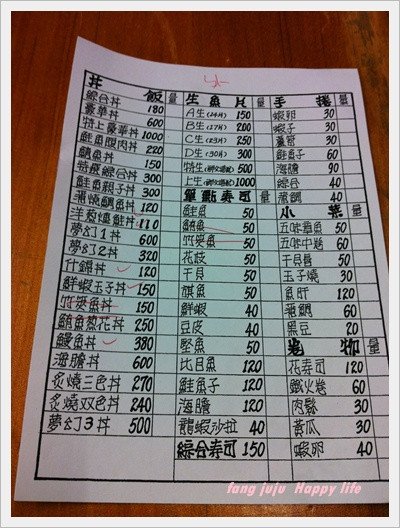 丼 飯 量
綜合丼 180
豪華丼 600
特上豪華丼 1000
鮭魚腹肉丼 220
鯛魚丼 150
特級綜合丼 300
鮭魚親子丼 300
蒲燒鯛魚丼 120
洋蔥燻鮭丼 110
夢幻1丼 600
夢幻2丼 320
什錦丼 120
鮮蝦玉子丼 150
竹筴魚丼 150
鮪魚蔥花丼 250
鰻魚丼 380
海膽丼 600
炙燒三色丼 270
炙燒双色丼 240
夢幻3丼 500
生 魚 片 量
A生(14片) 150
B生(17片) 200
C生(23片) 250
D生(30片) 300
特生 500
上生 1000
單點壽司 量
鮭魚 50
鮪魚 50
竹筴魚 50
花枝 50
干貝 50
旗魚 50
鮮蝦 40
豆皮 40
堅魚 50
比目魚 120
鮭魚子 120
海膽 120
龍蝦沙拉 40
綜合寿司 150
手 捲 量
蝦卵 30
蝦子 30
蘆筍 30
鮭魚子 60
海膽 90
綜合 40
蒲鯛 40
小 菜 量
五味章魚 50
五味中卷 60
干貝唇 50
玉子燒 30
魚肝 120
蒲鯛 60
黑豆 20
卷 物 量
花寿司 120
鐵火卷 60
肉鬆 30
黃瓜 30
蝦卵 40
fang juju Happy life